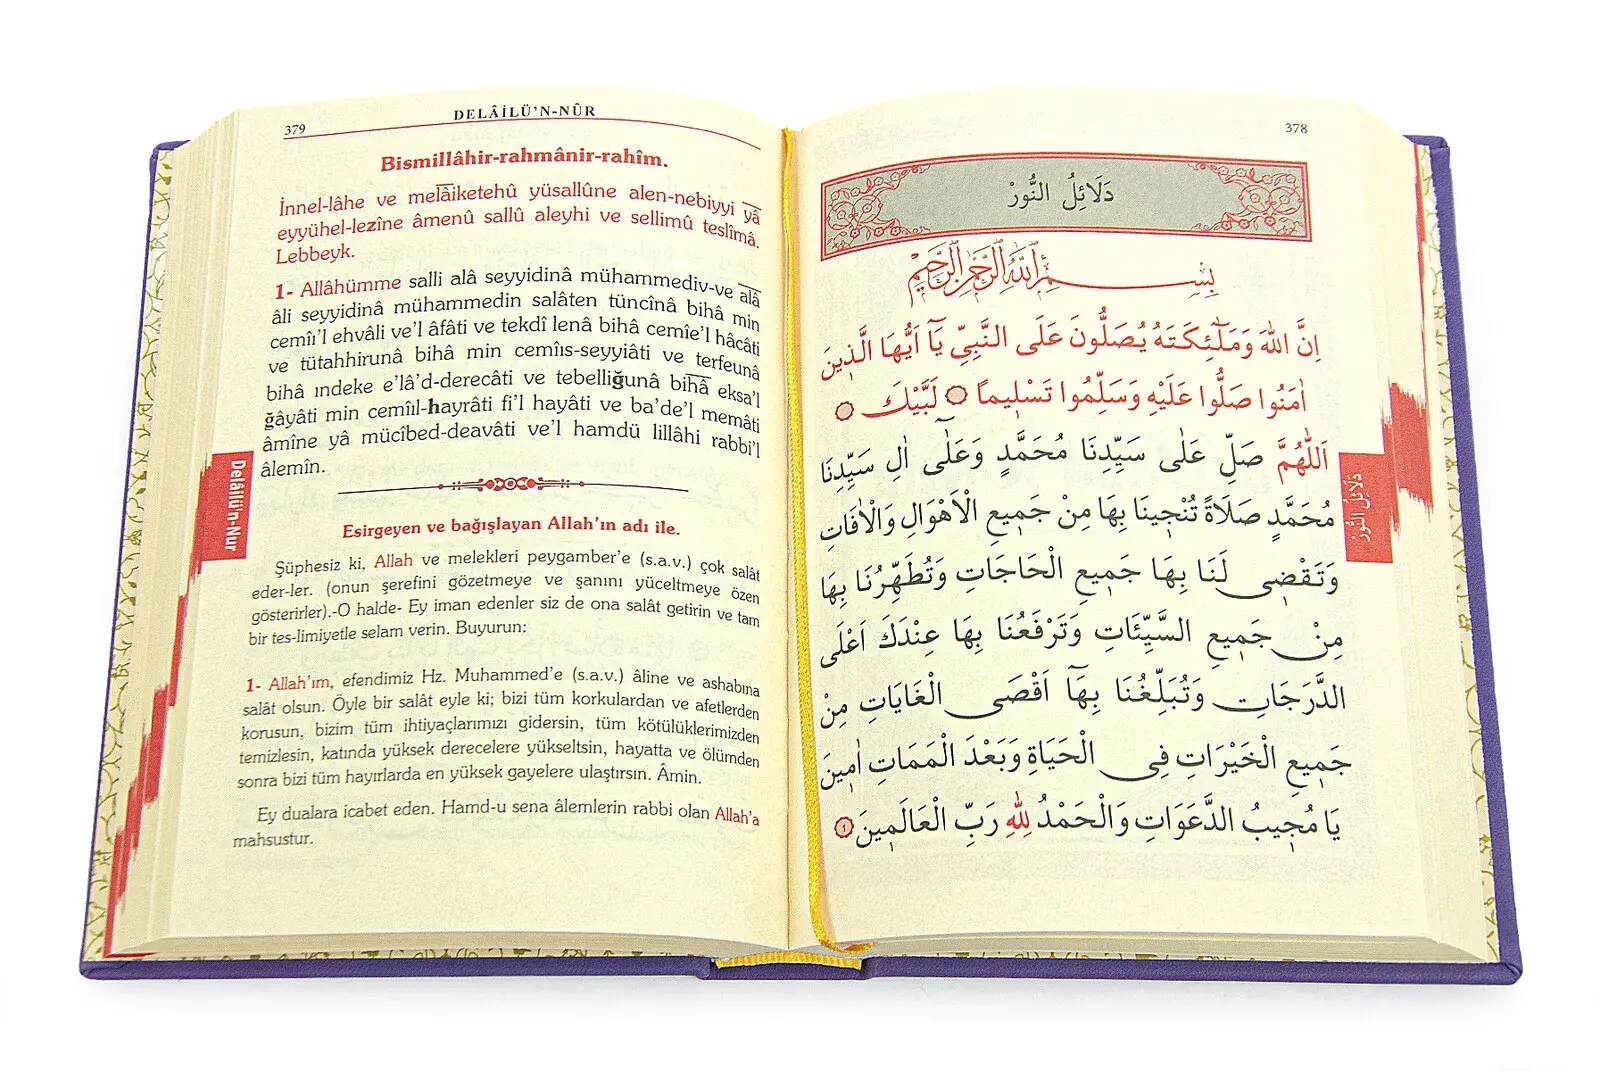 378
دَلَائِلُ النُّورْ
بِسْمِ اللّٰهِ الرَّحْمٰنِ الرَّحٖيمِ
اِنَّ اللّٰهَ وَمَلٰٓئِكَتَهُ يُصَلُّونَ عَلَى النَّبِىِّ يَٓا اَيُّهَا الَّذٖينَ
اٰمَنُوا صَلُّوا عَلَيْهِ وَسَلِّمُوا تَسْلٖيمًا لَبَّيْكَ
اَللّٰهُمَّ صَلِّ عَلٰى سَيِّدِنَا مُحَمَّدٍ وَعَلٰٓى اٰلِ سَيِّدِنَا
مُحَمَّدٍ صَلَاةً تُنْجٖينَا بِهَا مِنْ جَمٖيعِ الْاَهْوَالِ وَالْاٰفَاتِ
وَتَقْضٖى لَنَا بِهَا جَمٖيعِ الْحَاجَاتِ وَتُطَهِّرُنَا بِهَا
مِنْ جَمٖيعِ السَّيِّئَاتِ وَتَرْفَعُنَا بِهَا عِنْدَكَ اَعْلَى
الدَّرَجَاتِ وَتُبَلِّغُنَا بِهَٓا اَقْصَى الْغَايَاتِ مِنْ
جَمٖيعِ الْخَيْرَاتِ فِى الْحَيَاةِ وَبَعْدَ الْمَمَاتِ اٰمٖينَ
يَا مُجٖيبُ الدَّعَوَاتِ وَالْحَمْدُ لِلّٰهِ رَبِّ الْعَالَمٖينَ ١
دَلَائِلُ النُّورْ
379
DELÂİLÜ'N-NÛR
Bismillâhir-rahmânir-rahîm.
İnnel-lâhe ve melâiketehû yüsallûne alen-nebiyyi yâ
eyyühel-lezîne âmenû sallû aleyhi ve sellimû teslîmâ.
Lebbeyk.
1- Allâhümme salli alâ seyyidinâ mühammediv-ve alâ
âli seyyidinâ mühammedin salâten tüncînâ bihâ min
cemîi'l ehvâli ve'l âfâti ve tekdî lenâ bihâ cemîe'l hâcâti
ve tütahhirunâ bihâ min cemîıs-seyyiâti ve terfeunâ
bihâ ındeke e'lâ'd-derecâti ve tebelliğunâ bihâ eksa'l
ğâyâti min cemîıl-hayrâti fi'l hayâti ve ba'de'l memâti
âmîne yâ mücîbed-deavâti ve'l hamdü lillâhi rabbi'l
âlemîn.
Esirgeyen ve bağışlayan Allah'ın adı ile.
Şüphesiz ki, Allah ve melekleri peygamber'e (s.a.v.) çok salât
eder-ler. (onun şerefini gözetmeye ve şanını yüceltmeye özen
gösterirler).-O halde- Ey iman edenler siz de ona salât getirin ve tam
bir tes-limiyetle selam verin. Buyurun:
1- Allah'ım, efendimiz Hz. Muhammed'e (s.a.v.) âline ve ashabına
salât olsun. Öyle bir salât eyle ki; bizi tüm korkulardan ve afetlerden
korusun, bizim tüm ihtiyaçlarımızı gidersin, tüm kötülüklerimizden
temizlesin, katında yüksek derecelere yükseltsin, hayatta ve ölümden
sonra bizi tüm hayırlarda en yüksek gayelere ulaştırsın. Âmin.
Ey dualara icabet eden. Hamd-u sena âlemlerin rabbi olan Allah'a
mahsustur.
Delâilü'n-Nur